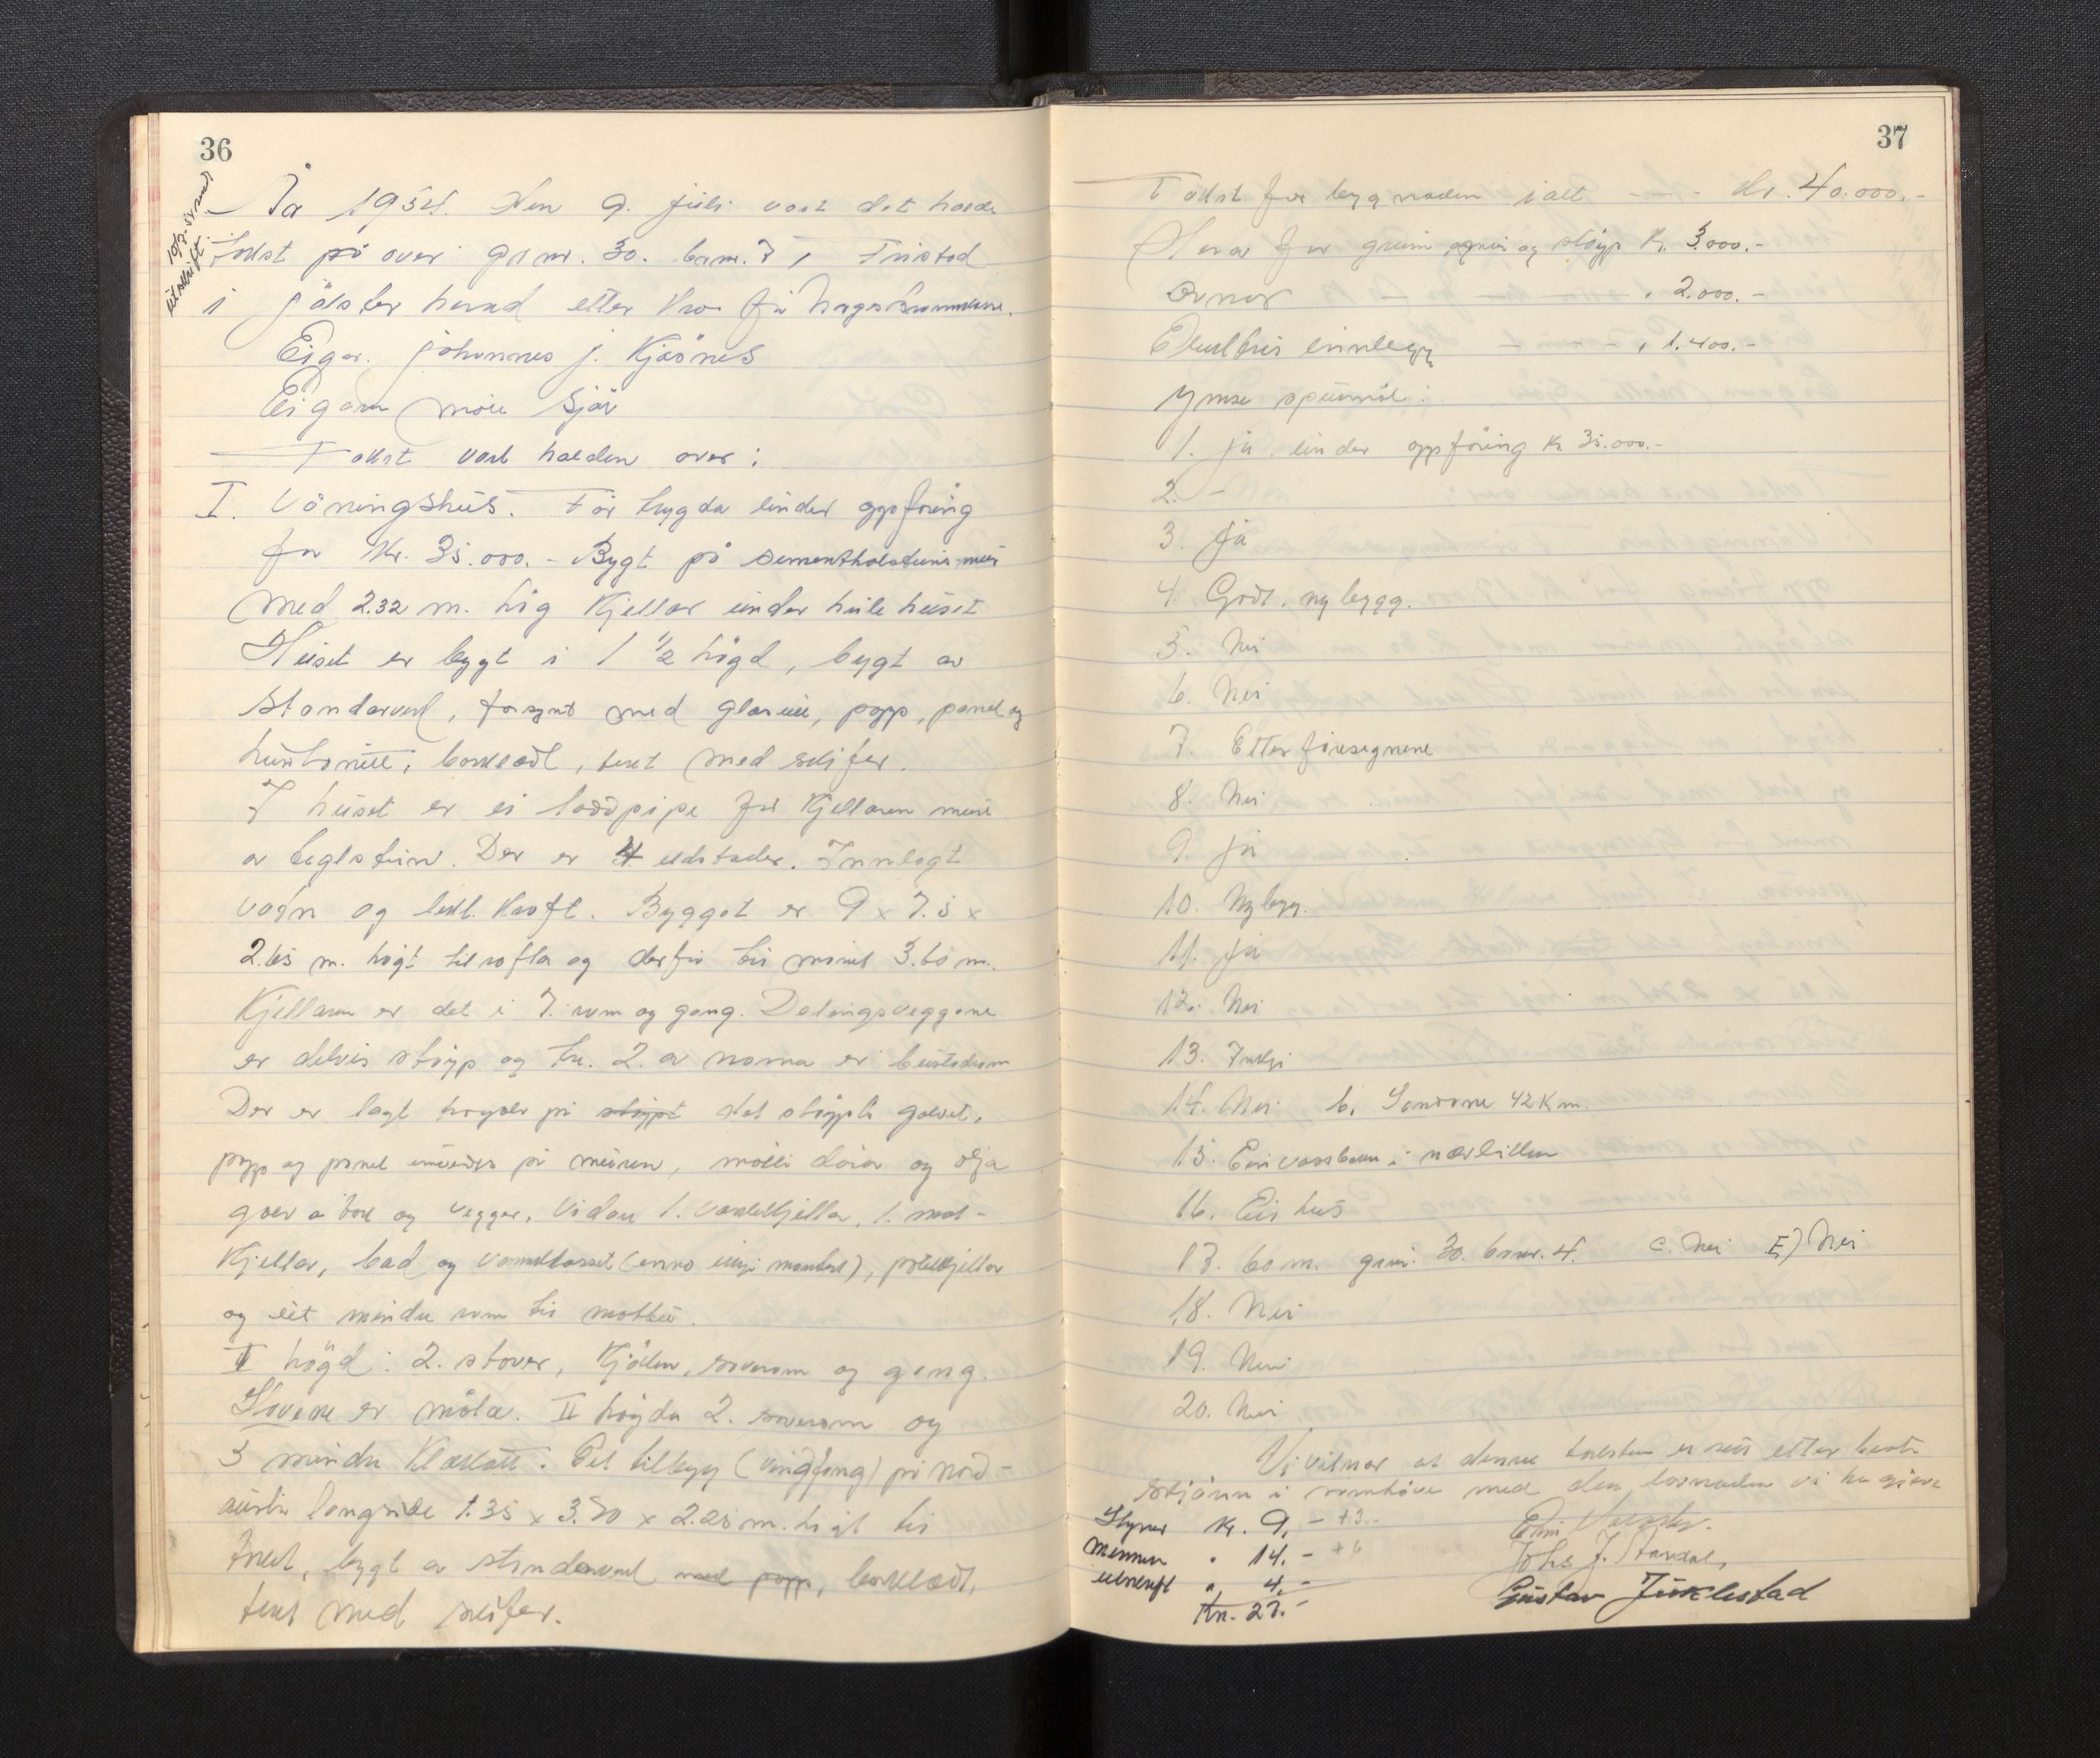 36
10/7. sk. med utskrift.
År 1954. den 9. juli vart det halde
takst på over gr.nr. 30. br.nr. 7, Fristad
i Jölster herad etter krav frå
Eigar. Johannes J. Kjösnes
Eigaren møtte sjøl
Takst vart halden over:
I. Våningshus. Før trygda under oppføring
for Kr. 35.000.- Bygt på sementholsteins mur
med 2.32 m. høg kjellar under heile huset
Huset er bygt i 1 1/2 högd, bygt av
standarverk, forsynt med glasull, papp, panel og
huntonitt, bordkledt, tekt med skifer.
I huset er ei loddpipe frå kjellaren murt
av teglstein. Der er 4 eldstader. Innlagt
vatn og lekt. kraft. Bygget er 9 x 7.5 x
2.65 m. högt til rofta og derfrå til mönet 3.60 m.
Kjellaren er det i 7. rom og gang. Delingsveggene
er delvis støyp og tre. 2. av romma er bustadrom
Der er lagt på støypt det støypte golvet,
papp og panel innvendes på muren, målte dører og
golv tak og vegger. Vidare 1. vaskekjellar, 1. mat-
kjellar, bad og vannklosset (enno ikkje montert), potetkjellar
og eit mindre rom til
I högd: 2. stover, kjöken, soverom og gang.
Stovene er måla. II högda 2. soverom og
3 mindre klæskott. Eit tilbygg (vindfang) på nord-
austre langside 1.35 x 3.70 x 2.25 m. högt til
bygt av standarverk med papp, bordkledt,
tekt med skifer.
37
Takst for bygnaden i alt - - - Kr. 40.000.-
Herav for grunn, og støyp Kr. 3.000.-
Ovnar - - - " 2.000.-
Elektris innlegg - - - " 1.400.-
Ymse spursmål:
1. Ja. under oppføring kr 35.000.-
2. -
3. Ja
4. Godt. nybygg.
5. Nei
6. Nei
7. Etter føresegnene
8. Nei
9. Ja
10. Nybygg.
11. Ja
12. Nei
13. Inkje
14. Nei b. Sandane 42 Km.
15. Ein vassbrun i nærleiken
16. Ein hus
17. 60 m. gr.nr. 30. br.nr. 4. c. Nei E) Nei
18. Nei
19. Nei
20. Nei
Vi vitnar at denne taksten er sett etter beste
skjønn i samhøve med den lovnaden vi ha gjeve
Styrar Kr. 9.- +3.-
Mennene " 14.- +6
utskrift " 4.-
Kr. 27.-
Johs J. Stardal,
Gustav Juklestad